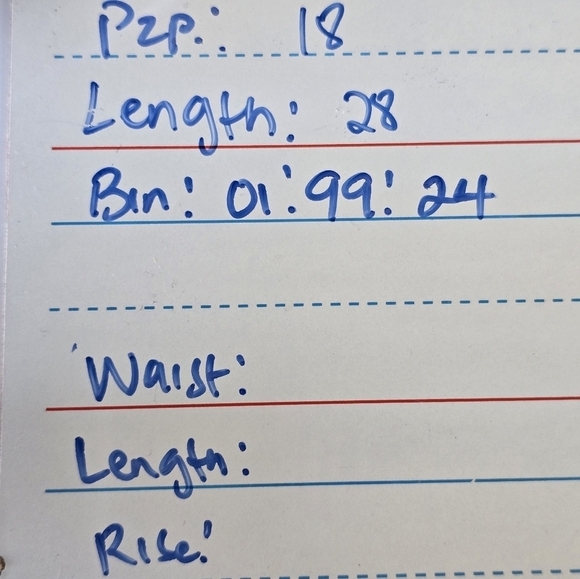 P2P.: 18
Length: 28
Bin: 01:99:24
Waist:
Length:
Rise: